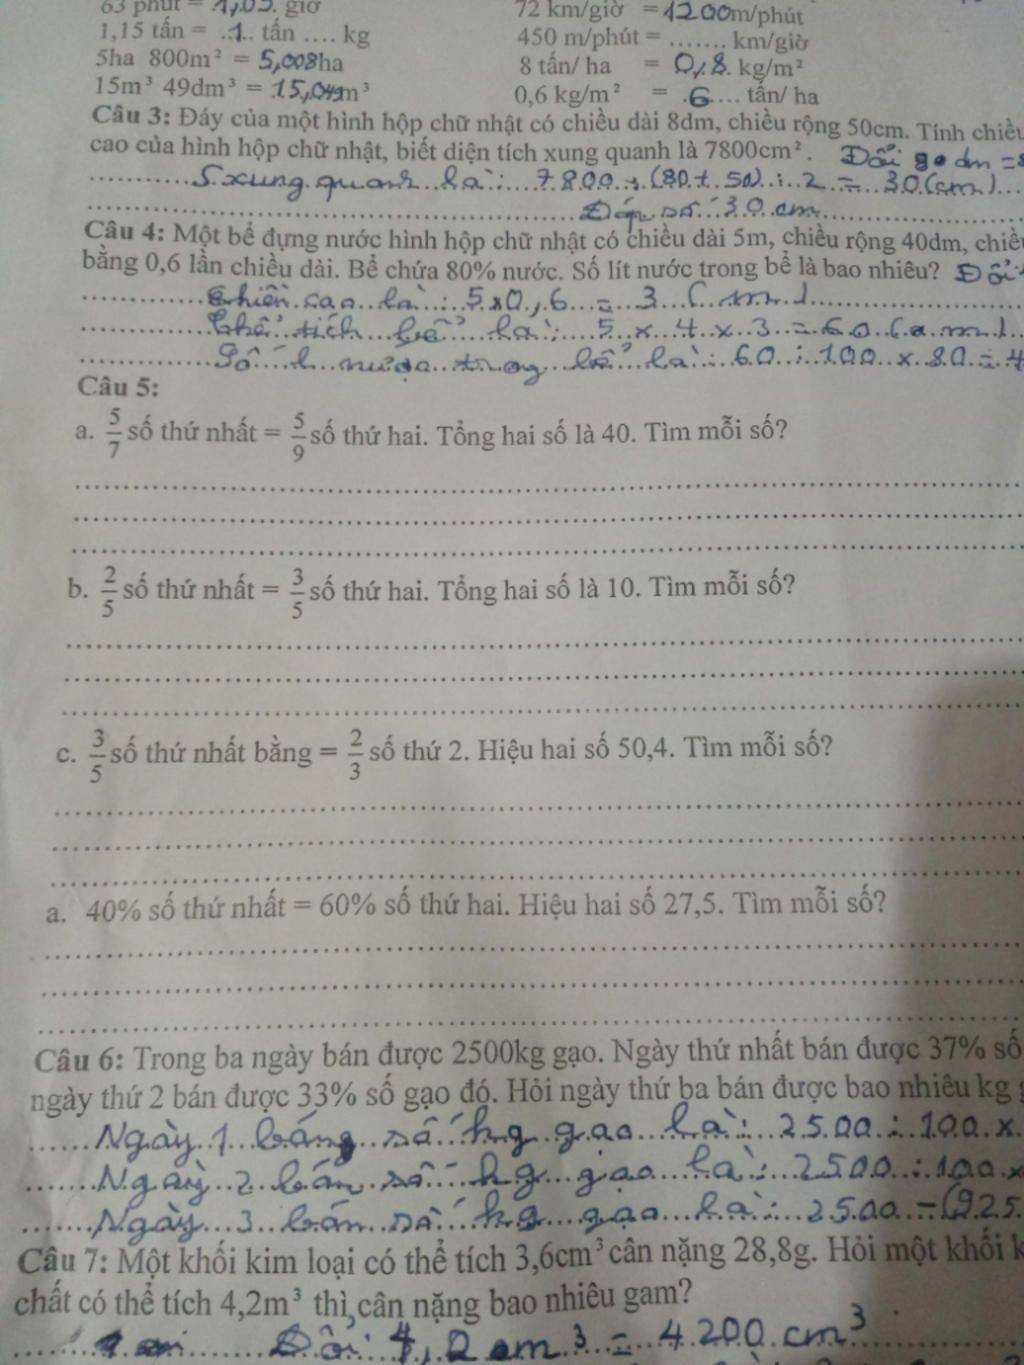 63 phút = 1,05. giờ 72 km/giờ = 1200m/phút
1,15 tấn = ..1.. tấn .... kg 450 m/phút = ....... km/giờ
5ha 800m² = 5,008ha 8 tấn/ ha = 0,8. kg/m²
15m³ 49dm³ = 15,049m³ 0,6 kg/m² = .6.... tấn/ ha
Câu 3: Đáy của một hình hộp chữ nhật có chiều dài 8dm, chiều rộng 50cm. Tính chiều
cao của hình hộp chữ nhật, biết diện tích xung quanh là 7800cm². Đổi 80 dm =8
S xung quanh là : 7800 : (80 + 50) : 2 = 30 (cm)
Đáp số : 30 cm
Câu 4: Một bể đựng nước hình hộp chữ nhật có chiều dài 5m, chiều rộng 40dm, chiều
bằng 0,6 lần chiều dài. Bể chứa 80% nước. Số lít nước trong bể là bao nhiêu? Đổi
Chiền cao là : 5 x 0,6 = 3 (m)
thể tích bể là : 5 x 4 x 3 = 60
Số l nước trong bể là : 60 : 100 x 80 = 4
Câu 5:
a. 5/7 số thứ nhất = 5/9 số thứ hai. Tổng hai số là 40. Tìm mỗi số?
b. 2/5 số thứ nhất = 3/5 số thứ hai. Tổng hai số là 10. Tìm mỗi số?
c. 3/5 số thứ nhất bằng = 2/3 số thứ 2. Hiệu hai số 50,4. Tìm mỗi số?
a. 40% số thứ nhất = 60% số thứ hai. Hiệu hai số 27,5. Tìm mỗi số?
Câu 6: Trong ba ngày bán được 2500kg gạo. Ngày thứ nhất bán được 37% số
ngày thứ 2 bán được 33% số gạo đó. Hỏi ngày thứ ba bán được bao nhiêu kg
Ngày 1 báng số kg gạo là : 2500 : 100 x
Ngày 2 bán số kg gạo là : 2500 : 100 x
Ngày 3 bán số kg gạo là : 2500 - (925
Câu 7: Một khối kim loại có thể tích 3,6cm³ cân nặng 28,8g. Hỏi một khối k
chất có thể tích 4,2m³ thì cân nặng bao nhiêu gam?
Đổi 4,2 m³ = 4200 cm³